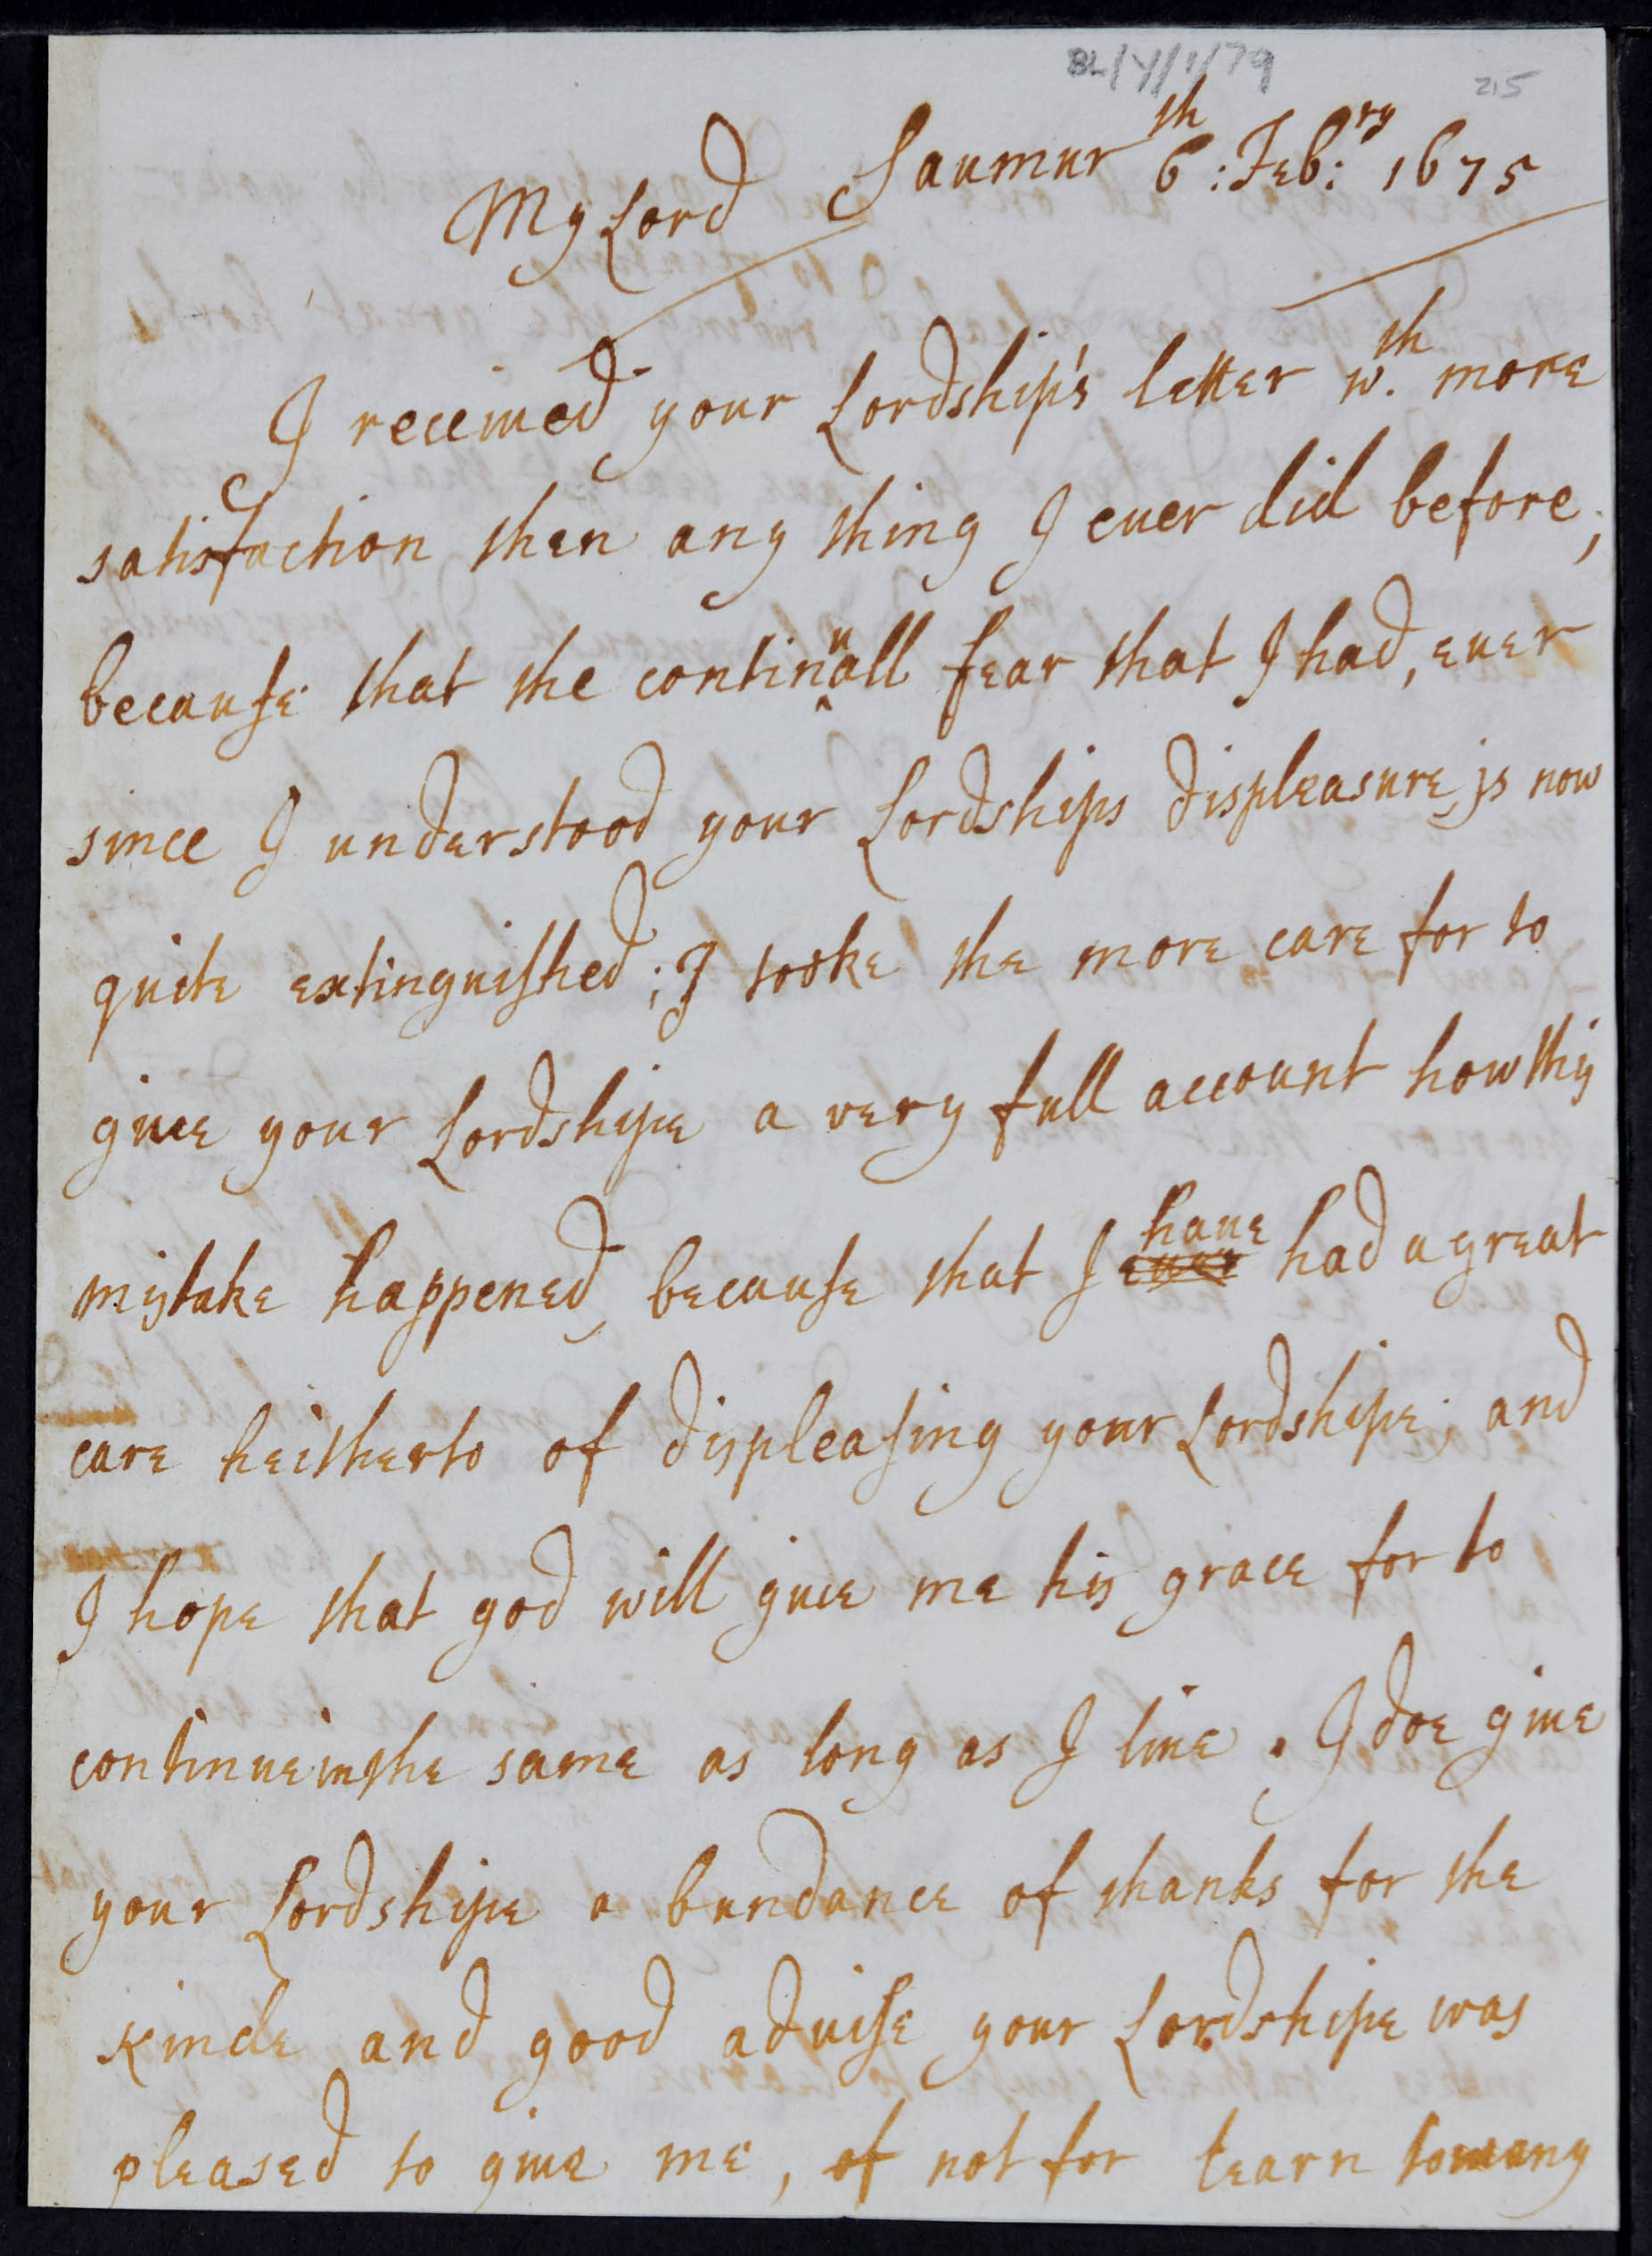 BL/Y/1/79
215
Saumur 6th: Feb:ry 1675
My Lord
I receiued your Lordship's letter wth. more
satisfaction then any thing I euer did before,
because that the continuall fear that I had, euer
since I understood your Lordships displeasure, js now
quite extinguished; I tooke the more care for to
giue your Lordshipe a very full account how this
mistake happened, because that I haue had a great
care heitherto of displeasing your Lordshipe, and
I hope that god will giue me his grace for to
continue in the same as long as I liue. I doe giue
your Lordshipe a bundance of thanks for the
kinde and good aduise your Lordshipe was
pleased to giue me, of not for learn to many